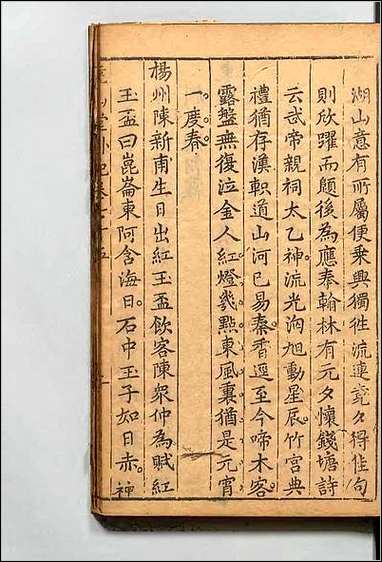 湖山意有所屬便乘興獨徃流連竟夕得佳句
則欣躍而頤後為應奉翰林有元夕懷錢塘詩
云武帝親祠太乙神流光泃旭動星辰竹宮典
禮猶存漢軹道山河已易秦香逕至今啼木客
露盤無復泣金人紅燈幾點東風裏猶是元宵
一度春
楊州陳新甫生日出紅玉盃飲客陳衆仲為賦紅
玉盃曰崑崙東阿含海日石中玉子如日赤神
堯山堂外紀卷七十五